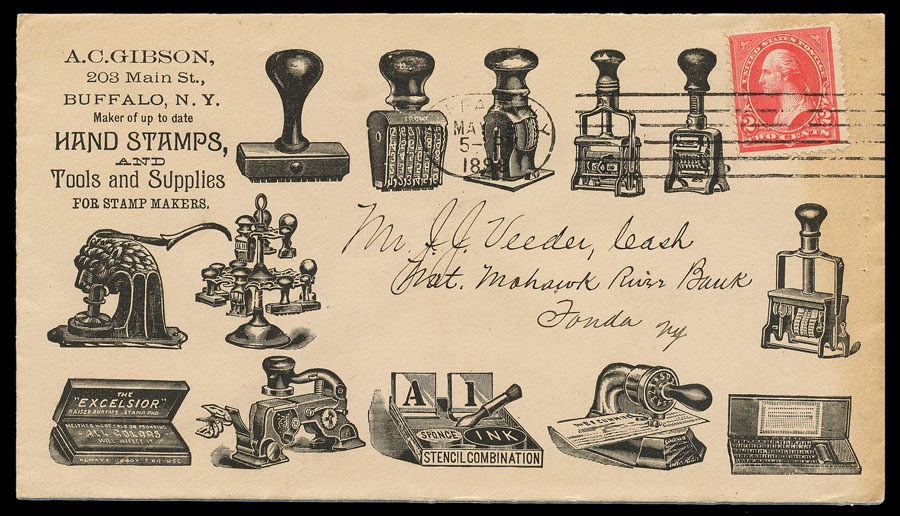 A.C.GIBSON,
203 Main St.,
BUFFALO, N. Y.
Maker of up to date
HAND STAMPS,
AND
Tools and Supplies
FOR STAMP MAKERS.
FRONT
MAY
5-
UNITED STATES POSTAGE
2 2
TWO CENTS
Mr. J. J. Veeder, Cash
Nat. Mohawk River Bank
Fonda NY
THE
"EXCELSIOR"
RAISED SURFACE STAMP PAD
NEITHER HEAT COLD OR
ALL COLORS
WILL
ALWAYS READY FOR USE
A 1
SPONGE INK
STENCIL COMBINATION